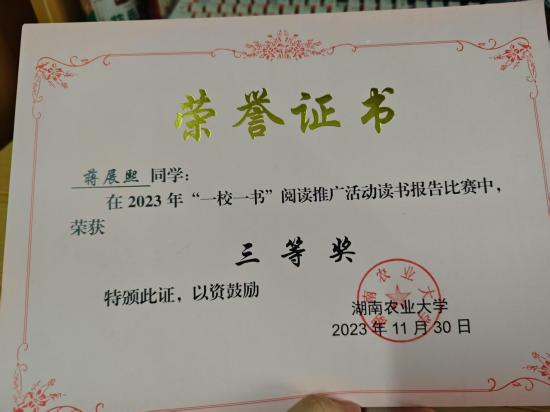 荣誉证书
蒋展熙 同学：
在 2023 年 “一校一书” 阅读推广活动读书报告比赛中，
荣获
三等奖
特颁此证，以资鼓励
湖南农业大学
2023 年 11 月 30 日
湖南农业大学